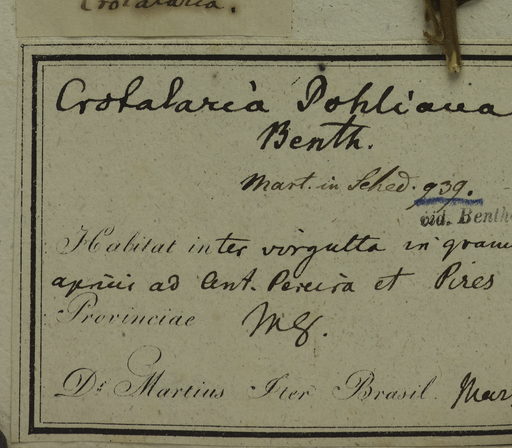 Crotalaria.
Crotalaria Pohliana
Benth.
Mart. in Sched. 939.
vid. Benth
Habitat inter virgulta in gram
apricis ad Ant. Pereira et Pires
Provinciae MG.
Dr. Martius Iter Brasil. Mar